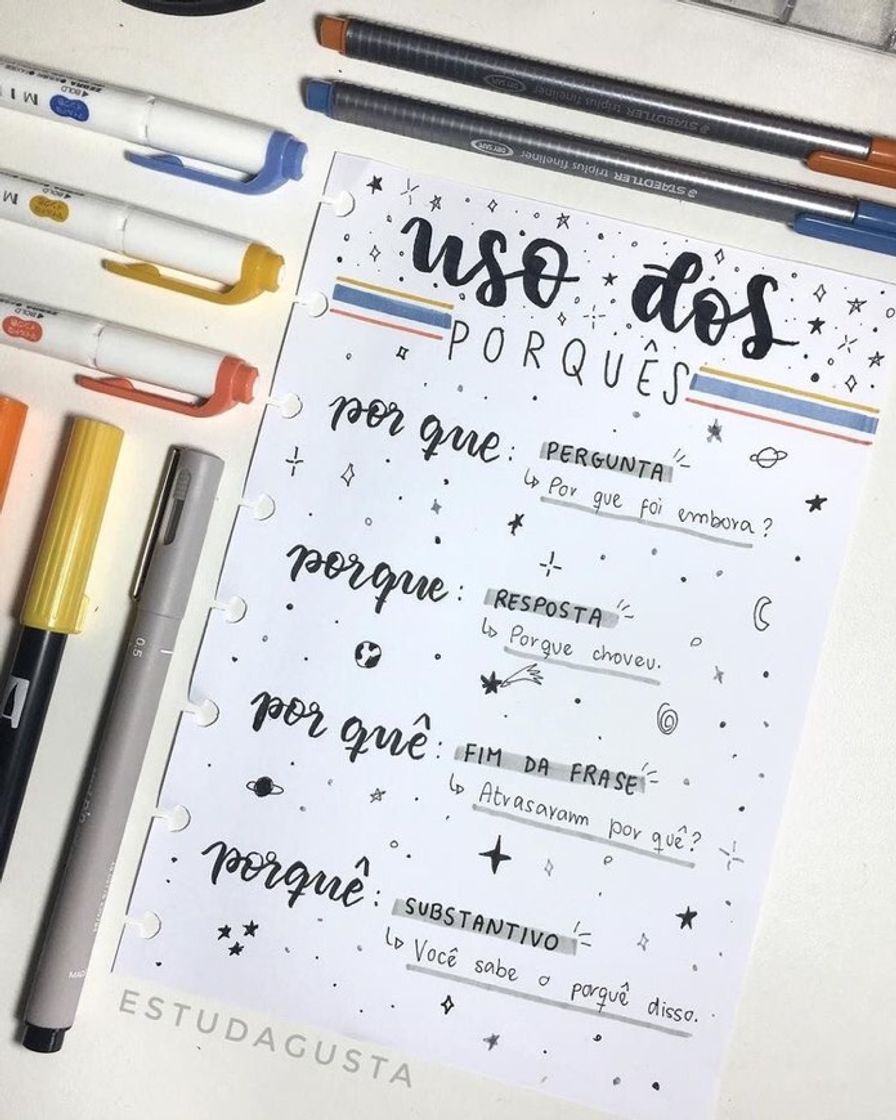 STAEDTLER triplus fineliner DRY SAFE
STAEDTLER triplus fineliner DRY SAFE
BOLD
M
BOLD
M
BOLD
uso dos
PORQUÊS
por que: PERGUNTA
↳ Por que foi embora?
porque: RESPOSTA
↳ Porque choveu.
por quê: FIM DA FRASE
↳ Atrasaram por quê?
porquê: SUBSTANTIVO
↳ Você sabe o porquê disso.
0.5
ESTUDAGUSTA